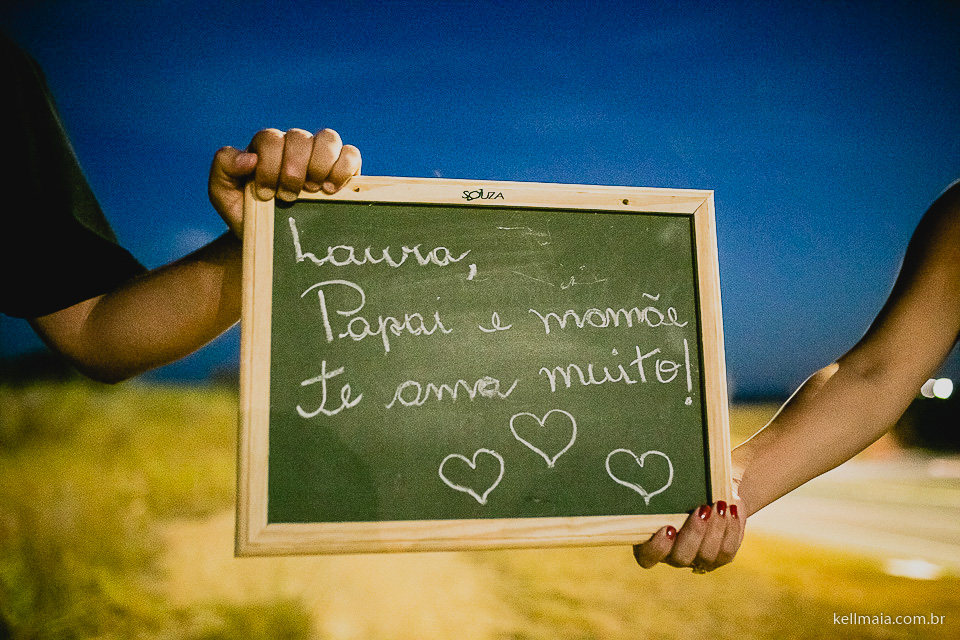 SOUZA
Laura,
Papai e mamãe
te ama muito!
kellmaia.com.br